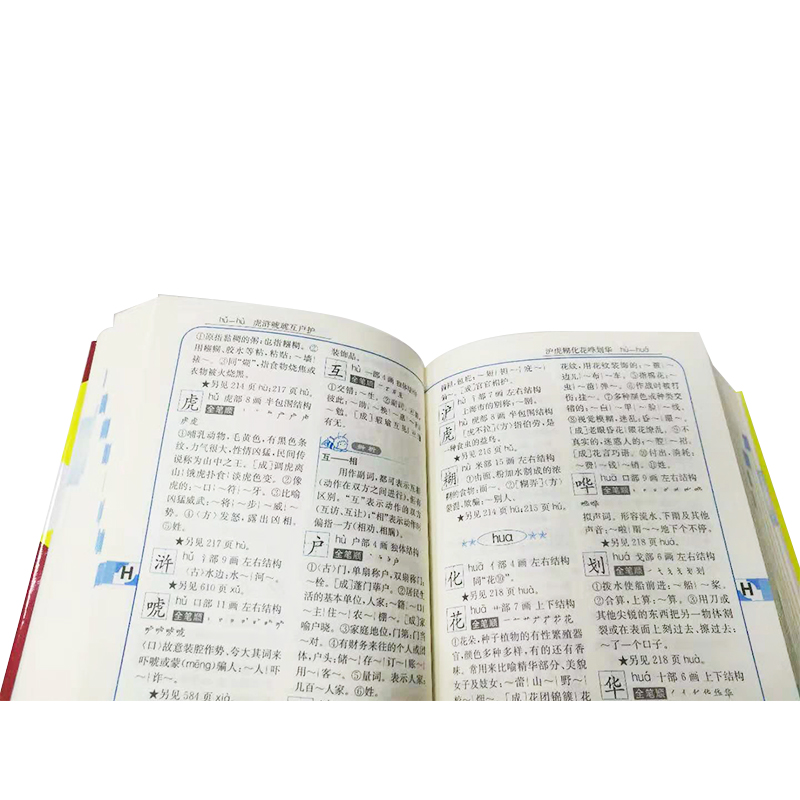 hǔ—hù 虎浒唬琥互户护
①原指黏稠的粥;也指糨糊。②
用糨糊、胶水等粘,粘贴:~墙|
裱~。③同“煳”,指食物烧焦或
衣物被火烧黑。
★另见214页hū;217页hù。
虎 hǔ 虎部 8画 半包围结构
全笔顺
①哺乳动物,毛黄色,有黑色条
纹,力气很大,性情凶猛,民间传
说称为山中之王。[成]调虎离
山|饿虎扑食|淡虎色变。②像
虎的:~口|~符|~牙。③比喻
凶猛威武:~将|~步|~威|~
势。④(方)发怒,露出凶相。
⑤姓。
★另见217页hù。
浒 hǔ 氵部 9画 左右结构
(古)水边:水~|河~。
★另见610页xǔ。
唬 hǔ 口部 11画 左右结构
全笔顺
(口)故意装腔作势、夸大其词来
吓唬或蒙(mēng)骗人:~人|吓
~|诈~。
★另见584页xià。
装饰品。
互 hù 一部 4画 独体结构
全笔顺
①交错:~生。②副词,
彼此:~助|~换|
有无。
辨析
互——相
用作副词,都可表示
(动作在双方之间进行),但有
区别。“互”表示动作的双方
(互访、互让);“相”表示动作
偏指一方(相劝、相瞒)。
户 hù 户部 4画 独体结构
全笔顺
①(古)门,单扇称户,双扇称门:
~栓。[成]蓬门荜户。②居民生
活的基本单位,人家;~籍|~口|
~主|住~|农~|棚~。[成]家
喻户晓。③家庭地位,门第:门当
~对。④有财务来往的个人或团
体,户头:储~|存~|订~|账~|
用~|客~。⑤量词。表示人家:
几百~人家。⑥姓。
沪虎糊化花哗划华 huā—huá
沪 hù 氵部 7画 左右结构
上海市的别称:~剧。
虎 hù 虎部 8画 半包围结构
[虎不拉](方)指伯劳,是
一种食虫的益鸟。
糊 hù 米部 15画 左右结构
①由面、粉加水制成的浓
稠的食物:面~。②[糊弄](方)
蒙混,欺骗:~别人。
★另见214页hū;215页hú。
hua
化 huā 亻部 4画 左右结构
同“花⑩”。
★另见218页huà。
花 huā 艹部 7画 上下结构
全笔顺
①花朵,种子植物的有性繁殖器
官,颜色多种多样,有的还有香
味。常用来比喻精华部分、美貌
女子及妓女:~蕾|山~|野~|
[成]花团锦簇|花
花纹,用花纹装饰的:
⑦多种颜色或种类交
错的:~白|~甲|~脸|~线。
⑧视觉模糊,迷乱:昏~|眼~。
[成]老眼昏花|眼花缭乱。⑨不
真实的,迷惑人的:~腔|~招。
[成]花言巧语。⑩付出,消耗:
~费|~钱|~销。⑪姓。
哗 huā 口部 9画 左右结构
全笔顺
拟声词。形容流水、下雨及其他
声音:~啦|雨~~地下个不停。
★另见218页huá。
划 huá 戈部 6画 左右结构
全笔顺
①拨水使船前进:~船|~桨。
②合算,上算:~算。③用刀或
其他尖锐的东西把另一物体割
裂或在表面上刻过去、擦过去:
~了一个口子。
★另见218页huà。
华 huá 十部 6画 上下结构
全笔顺
H
H